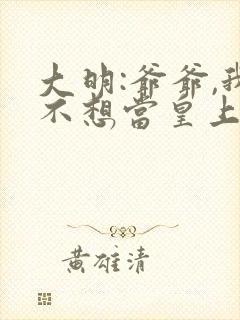 大明:爺爺,我
不想當皇上
黃雄清